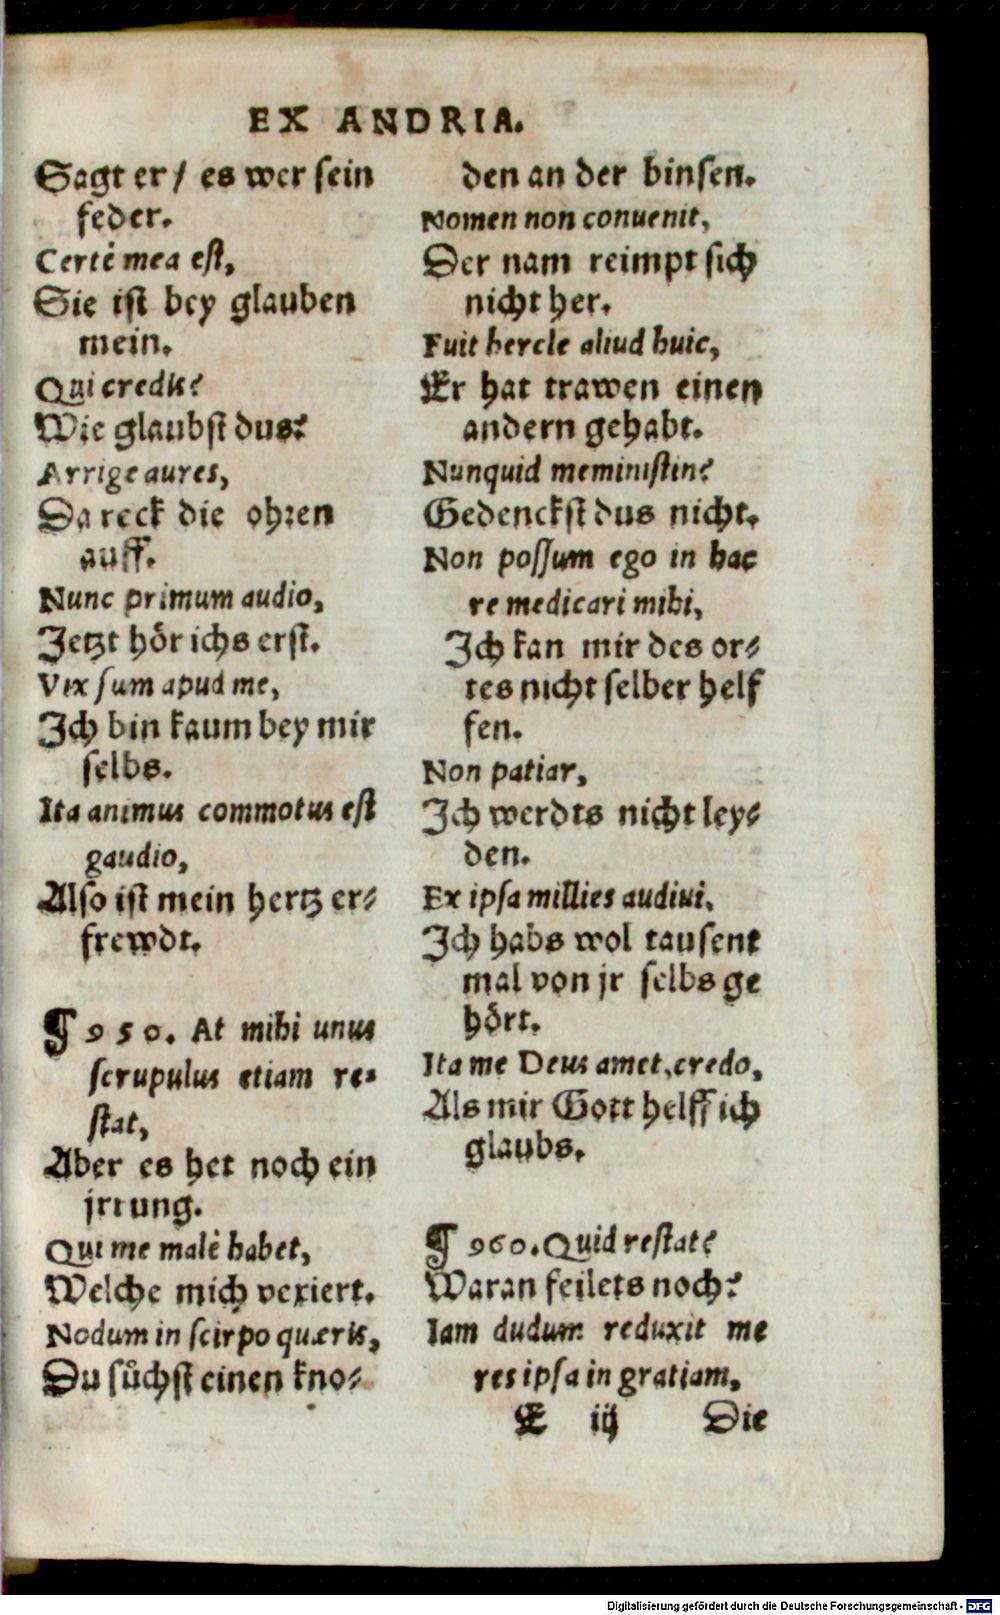 EX ANDRIA.
Sagt er / es wer sein
feder.
Certè mea est,
Sie ist bey glauben
mein.
Qui credis?
Wie glaubst dus?
Arrige aures,
Da reck die ohren
auff.
Nunc primum audio,
Jetzt hör ichs erst.
Vix sum apud me,
Ich bin kaum bey mir
selbs.
Ita animus commotus est
gaudio,
Also ist mein hertz er-
frewdt.
¶ 950. At mihi unus
scrupulus etiam re-
stat,
Aber es het noch ein
jrrung.
Qui me malè habet,
Welche mich vexiert.
Nodum in scirpo quæris,
Du sůchst einen kno-
den an der binsen.
Nomen non conuenit,
Der nam reimpt sich
nicht her.
Fuit hercle aliud huic,
Er hat trawen einen
andern gehabt.
Nunquid meministin?
Gedenckst dus nicht.
Non possum ego in hac
re medicari mihi,
Ich kan mir des or-
tes nicht selber helf
fen.
Non patiar,
Ich werdts nicht ley-
den.
Ex ipsa millies audiui.
Ich habs wol tausent
mal von jr selbs ge
hört.
Ita me Deus amet, credo,
Als mir Gott helff ich
glaubs.
¶ 960. Quid restat?
Waran feilets noch?
Iam dudum reduxit me
res ipsa in gratiam,
E iij Die
Digitalisierung gefördert durch die Deutsche Forschungsgemeinschaft - DFG